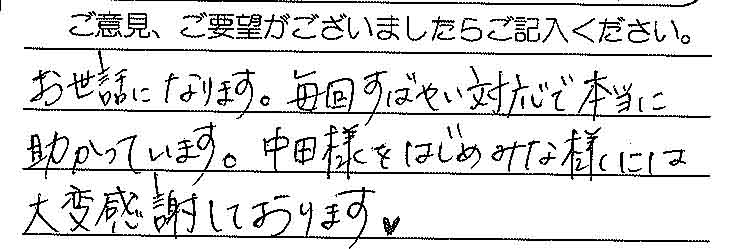 ご意見、ご要望がございましたらご記入ください。
お世話になります。毎回すばやい対応で本当に
助かっています。中田様をはじめみな様には
大変感謝しております♥